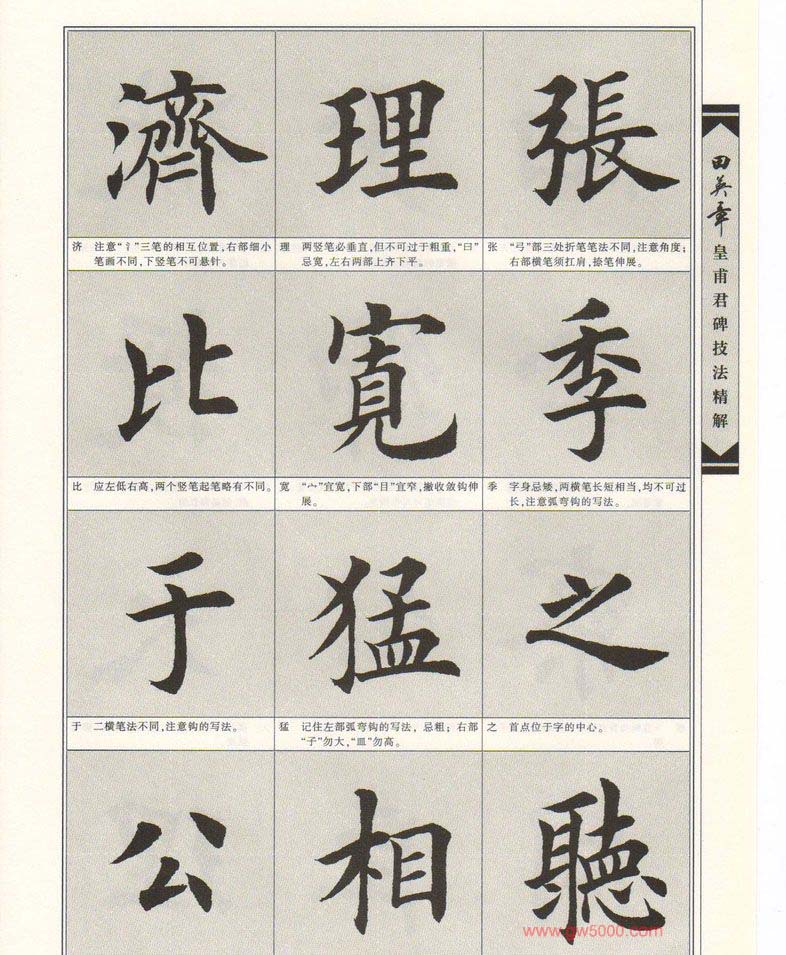 田英章皇甫君碑技法精解
張
张 “弓”部三处折笔笔法不同,注意角度;
右部横笔须扛肩,捺笔伸展。
季
季 字身忌矮,两横笔长短相当,均不可过
长,注意弧弯钩的写法。
之
之 首点位于字的中心。
聽
理
理 两竖笔必垂直,但不可过于粗重,“曰”
忌宽,左右两部上齐下平。
寬
宽 “宀”宜宽,下部“目”宜窄,撇收敛钩伸
展。
猛
猛 记住左部弧弯钩的写法,忌粗;右部
“子”勿大,“皿”勿高。
相
濟
济 注意“氵”三笔的相互位置,右部细小
笔画不同,下竖笔不可悬针。
比
比 应左低右高,两个竖笔起笔略有不同。
于
于 二横笔法不同,注意钩的写法。
公
www.gw5000.com